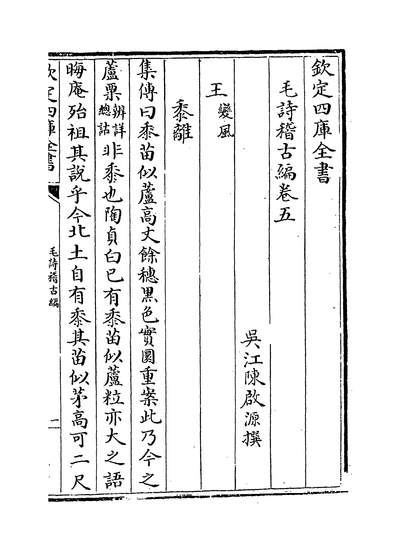 欽定四庫全書
毛詩稽古編卷五
吳江陳啟源撰
王變風
黍離
集傳曰黍苗似蘆高丈餘穗黑色實圓重案此乃今之
蘆粟辨詳總詁非黍也陶貞白已有黍苗似蘆粒亦大之語
晦庵殆祖其說乎今北土自有黍其苗似茅高可二尺
欽定四庫全書
毛詩稽古編